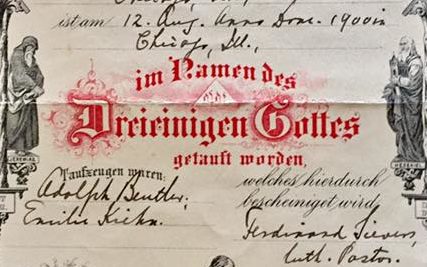 ist am 12. Aug. Anno Dom. 1900 in
Chicago, Ill.,
im Namen des
Dreieinigen Gottes
getauft worden,
Taufzeugen waren:
welches hierdurch
bescheiniget wird
Adolph Beutler.
Emilie Kiehn.
Ferdinand Sievers,
luth. Pastor.
JEREMIAS